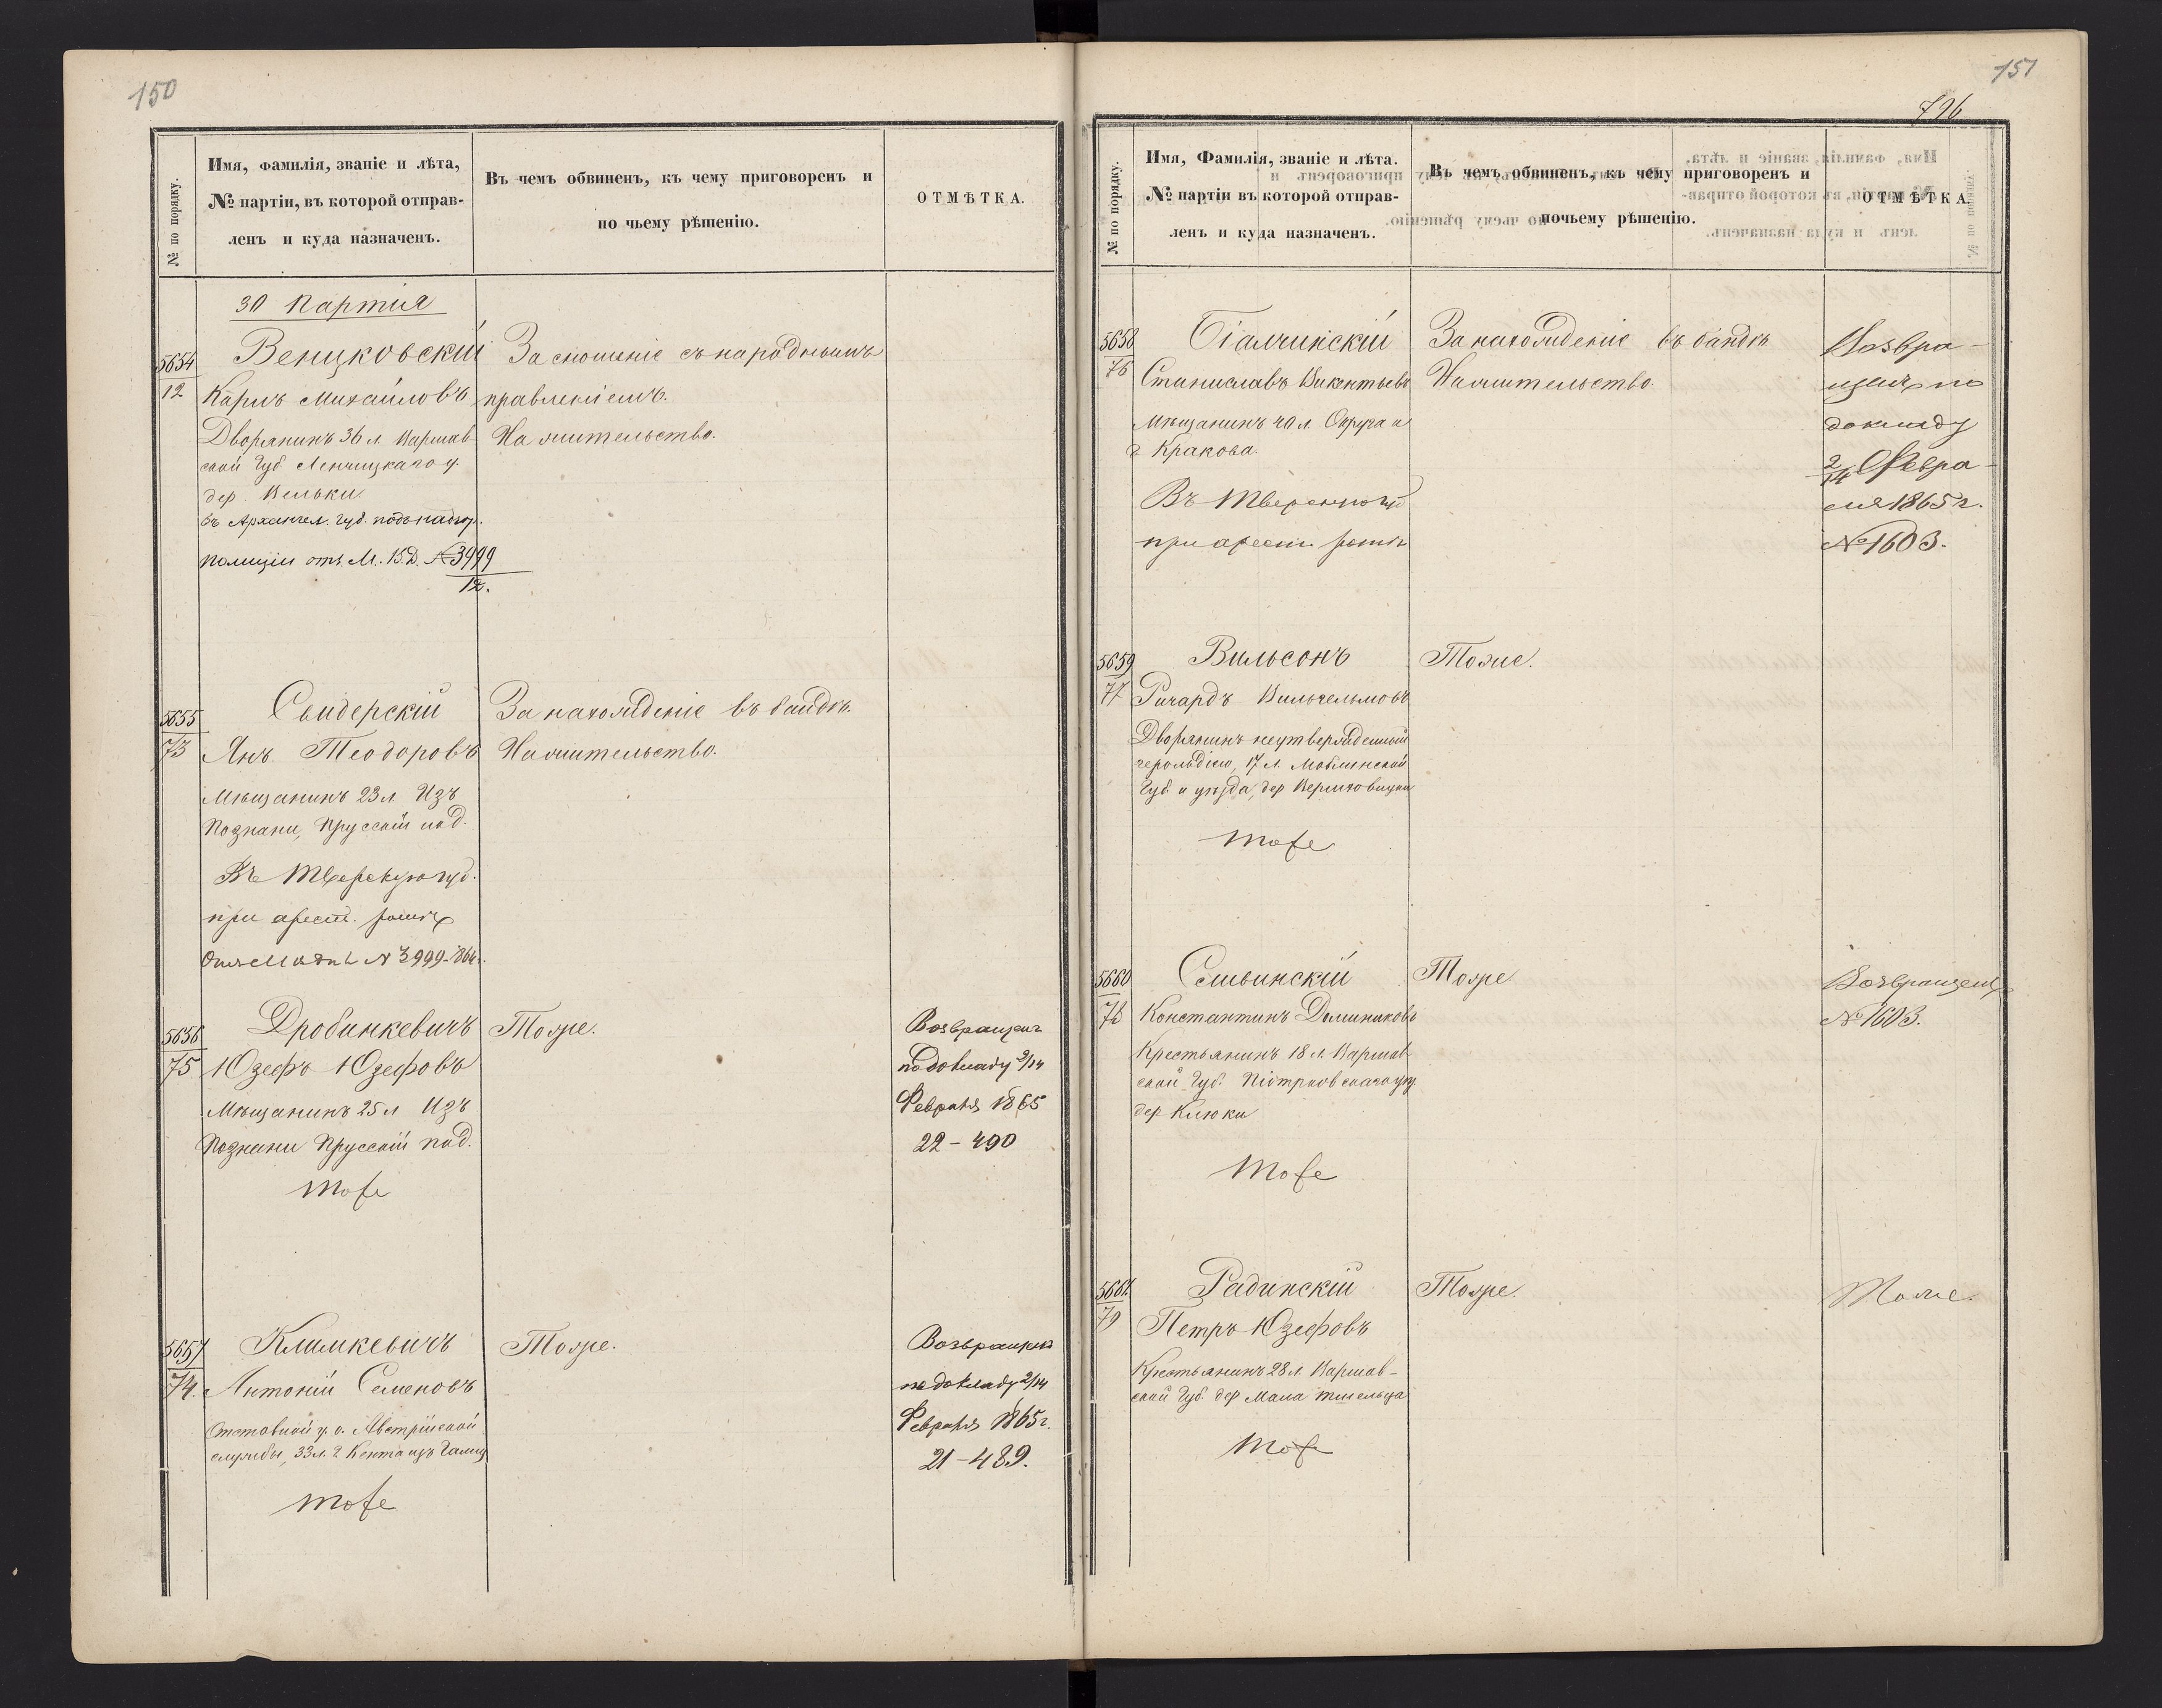 150
№ по порядку.
Имя, фамилія, званіе и лѣта,
№ партіи, въ которой отправ-
ленъ и куда назначенъ.
Въ чемъ обвиненъ, къ чему приговоренъ и
по чьему рѣшенію.
ОТМѢТКА.
30 Партія
5654
12
Венцковскій
Карлъ Михайловъ
Дворянинъ 36 л. Варшав
ской Губ Ленчицкаго у.
дер. Вельки.
въ Архангел. губ. подъ надзор.
полиціи отн. М. В. Д. № 3999
12.
За сношеніе съ народнымъ
правленіемъ.
На жительство.
5655
73
Свидерскій
Янъ Теодоровъ
Мѣщанинъ 23 л. Изъ
Познани, Прусскій под.
Въ Тверскую губ.
при арест. ротѣ
№ 3999-864 г.
За нахожденіе въ бандѣ.
На жительство.
5656
75
Дробинкевичъ
Юзефъ Юзефовъ
Мѣщанинъ 25 л Изъ
Познани Прусскій под.
тоже
Тоже.
Возвращенъ
по докладу 2/14
Февраля 1865
22-490
5657
74.
Климкевичъ
Антоній Семеновъ
Отставной у. о. Австрійской
службы, 33 л. г. Кента изъ Галиц
тоже
Тоже.
Возвращенъ
по докладу 2/14
Февраля 1865 г.
21-489.
151
796
№ по порядку.
Имя, Фамилія, званіе и лѣта.
№ партіи въ которой отправ-
ленъ и куда назначенъ.
Въ чемъ обвиненъ, къ чему приговоренъ и
почьему рѣшенію.
ОТМѢТКА.
5658
76
Бялчинскій
Станиславъ Викентьевъ
Мѣщанинъ 40 л. Округа и
г. Кракова
Въ Тверскую губ
при арест ротѣ
За нахожденіе въ бандѣ
На жительство.
Возвра-
щенъ по
докладу
2/14 Февра-
ля 1865 г.
№ 1603.
5659
77
Вильсонъ
Ричардъ Вильгельмовъ
Дворянинъ неутвержденный
герольдіею, 17 л. Люблинской
Губ. и уѣзда, дер
тоже
Тоже.
5660
78
Сливинскій
Константинъ Доминиковъ
Крестьянинъ 18 л. Варшав-
ской Губ. Піотрковскаго уѣз.
дер Клюки
тоже
Тоже
Возвращенъ
№ 1603.
5661
79
Радинскій
Петръ Юзефовъ
Крестьянинъ 28 л. Варшав-
ской Губ. дер Мала
тоже
Тоже.
Тоже.